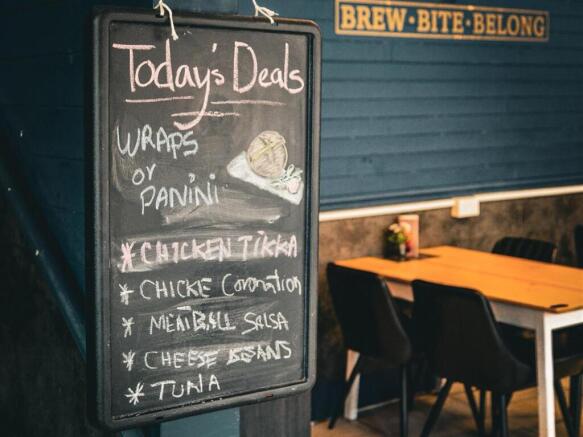 BREW · BITE · BELONG
Today's Deals
WRAPS
or
PANINI
* CHICKEN TIKKA
* CHICKE Coronation
* MEATBALL SALSA
* CHEESE BEANS
* TUNA